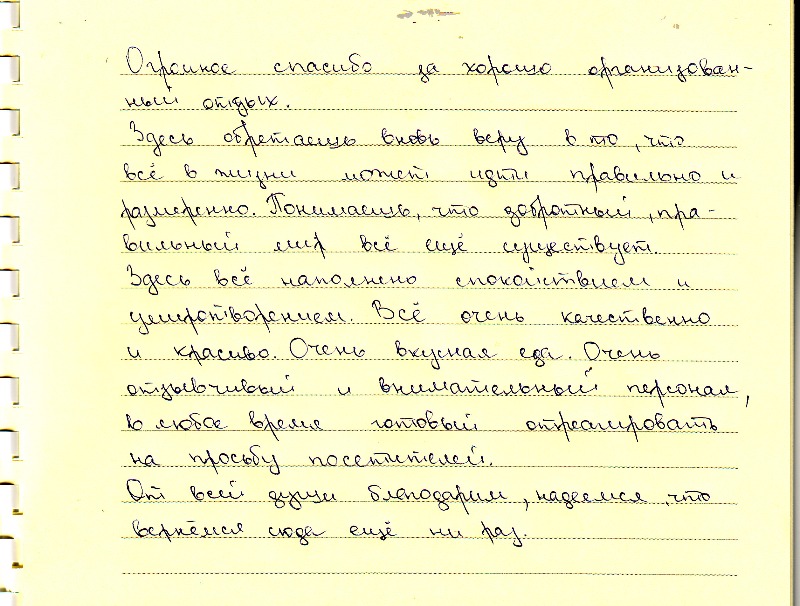 Огромное спасибо за хорошо организован-
ный отдых.
Здесь обретаешь вновь веру в то, что
всё в жизни может идти правильно и
размеренно. Понимаешь, что добротный, пра-
вильный мир всё ещё существует.
Здесь всё наполнено спокойствием и
умиротворением. Всё очень качественно
и красиво. Очень вкусная еда. Очень
отзывчивый и внимательный персонал,
в любое время готовый отреагировать
на просьбу посетителей.
От всей души благодарим, надеемся, что
вернёмся сюда ещё ни раз.